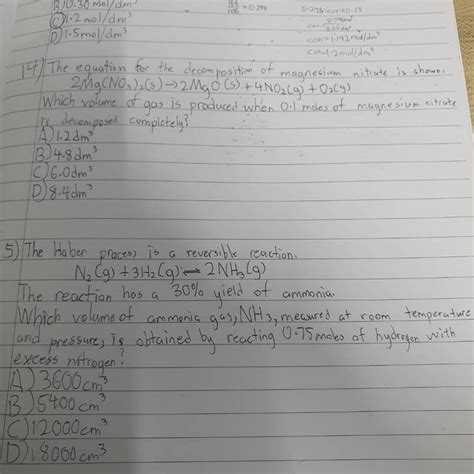 B) 0.30 mol/dm³
C) 1.2 mol/dm³
D) 1.5 mol/dm³
= 0.298
con=1.192 mol/dm³
con=1.2mol/dm³
4) The equation for the decomposition of magnesium nitrate is shown.
2Mg(NO₃)₂(s) → 2MgO(s) + 4NO₂(g) + O₂(g)
Which volume of gas is produced when 0.1 moles of magnesium nitrate
is decomposed completely?
A) 1.2dm³
B) 4.8dm³
C) 6.0dm³
D) 8.4dm³
5) The Haber process is a reversible reaction.
N₂(g) + 3H₂(g) ⇌ 2NH₃(g)
The reaction has a 30% yield of ammonia.
Which volume of ammonia gas, NH₃, measured at room temperature
and pressure, is obtained by reacting 0.75 moles of hydrogen with
excess nitrogen?
A) 3600cm³
B) 5400cm³
C) 12000cm³
D) 18000cm³